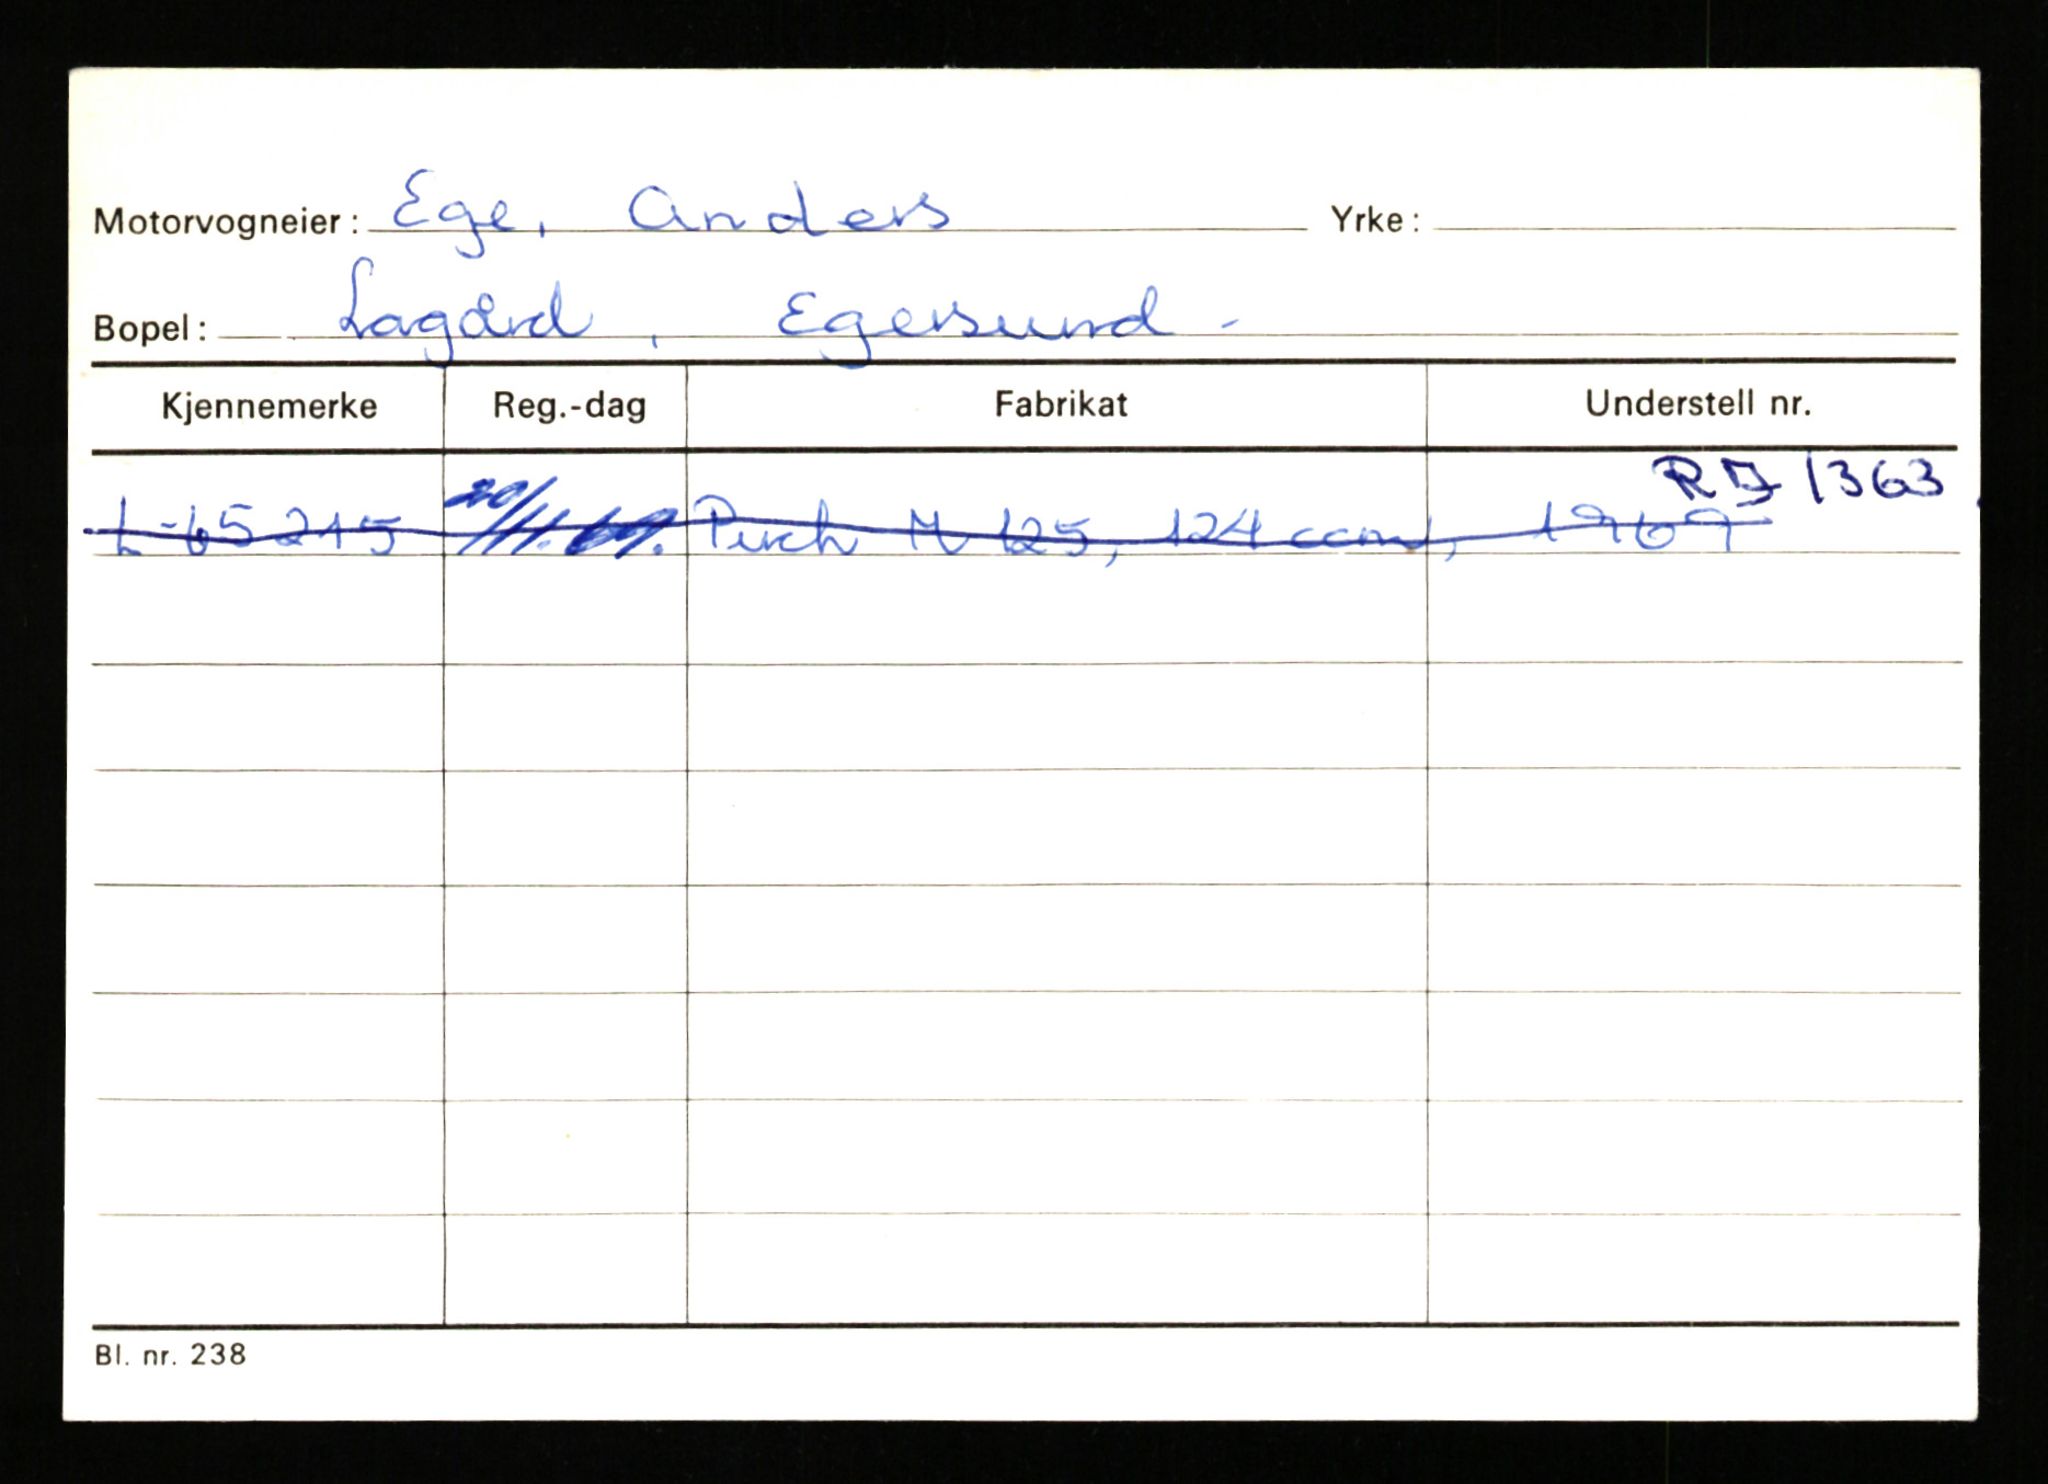 Motorvogneier: Ege, Anders Yrke:
Bopel: Lagård, Egersund -
Kjennemerke Reg.-dag Fabrikat Understell nr.
RD 1363
L-65215 20/11.69. Puch M 125, 124 ccm, 1969
Bl. nr. 238